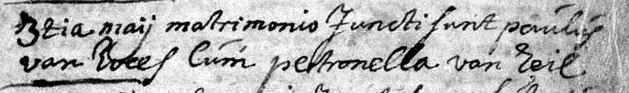 3tia maij matrimonio Juncti sunt paulus
van Roees Cum petronella van Zeil